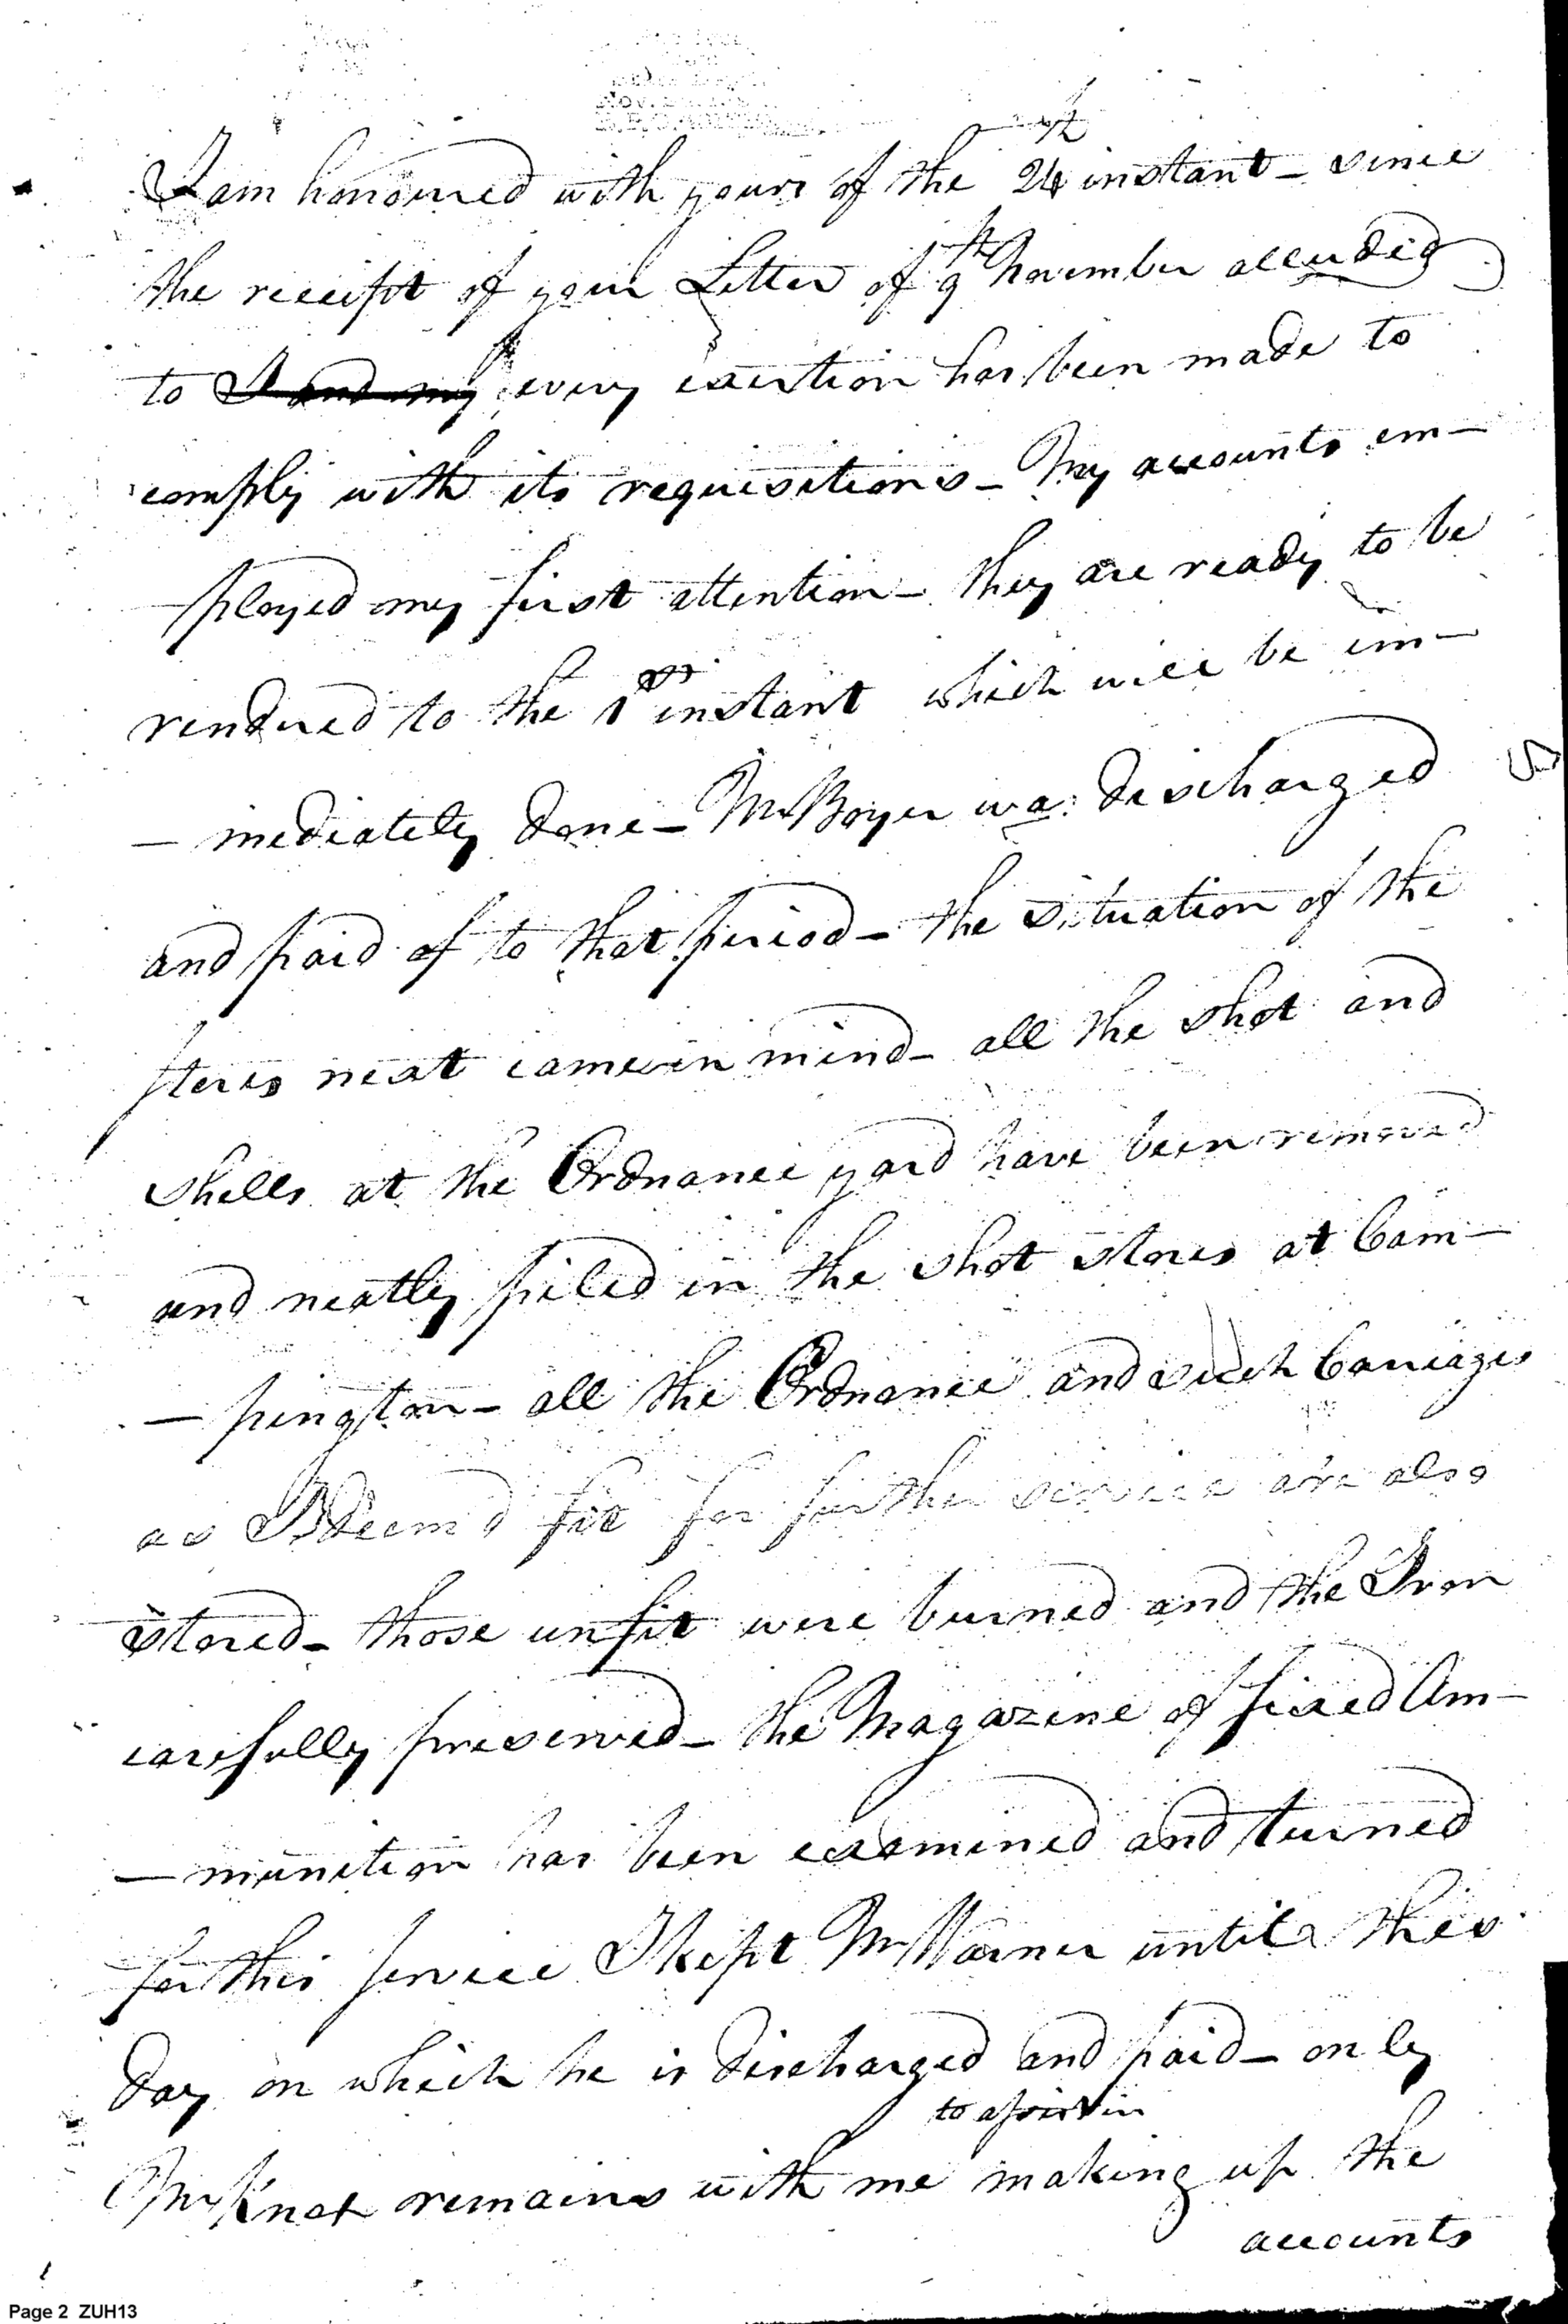 I am honoured with yours of the 24th instant - since
the receipt of your Letter of 9th November alluded
to I and my every exertion has been made to
comply with its requisitions - My accounts em-
-ployed my first attention - they are ready to be
rendered to the 1st instant which will be im-
-mediately done - Mr Boyer was discharged
and paid of to that period - the situation of the
stores next came in mind - all the shot and
shells at the Ordnance yard have been removed
and neatly piled in the shot stores at Cam-
-pington - all the Ordnance and such Carriages
as I deem'd fit for further service are also
stored - those unfit were burned and the Iron
carefully preserved - the Magazine of fixed Am-
-munition has been examined and turned
for this service I kept Mr Warner until this
day on which he is discharged and paid - only
to assist in
Mr Knox remains with me making up the
accounts
Page 2 ZUH13